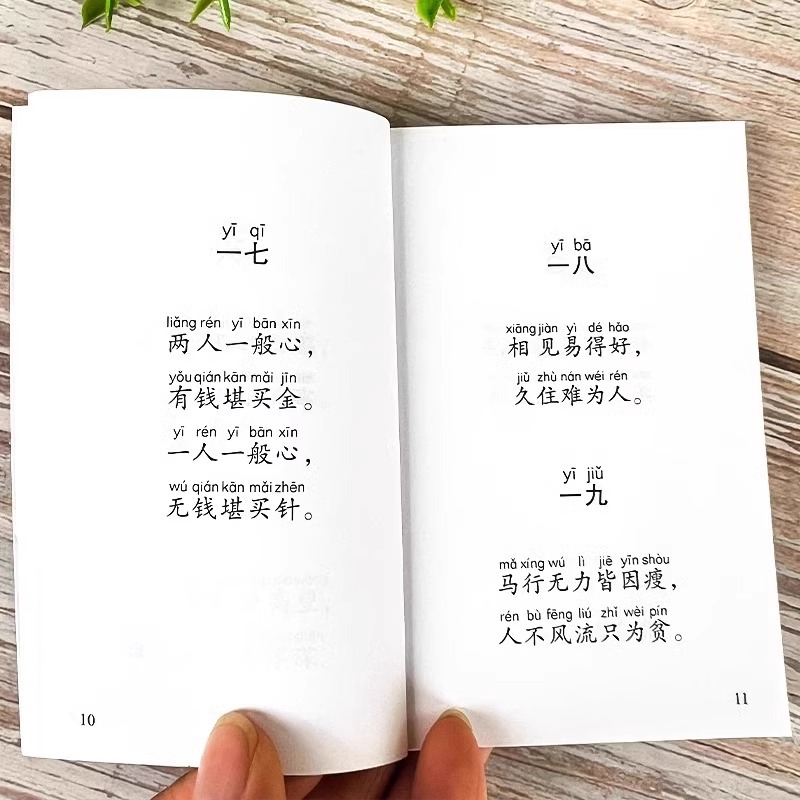 yī qī
一七
liǎng rén yī bān xīn
两人一般心，
yǒu qián kān mǎi jīn
有钱堪买金。
yī rén yī bān xīn
一人一般心，
wú qián kān mǎi zhēn
无钱堪买针。
10
yī bā
一八
xiāng jiàn yì dé hǎo
相见易得好，
jiǔ zhù nán wéi rén
久住难为人。
yī jiǔ
一九
mǎ xíng wú lì jiē yīn shòu
马行无力皆因瘦，
rén bù fēng liú zhǐ wèi pín
人不风流只为贫。
11